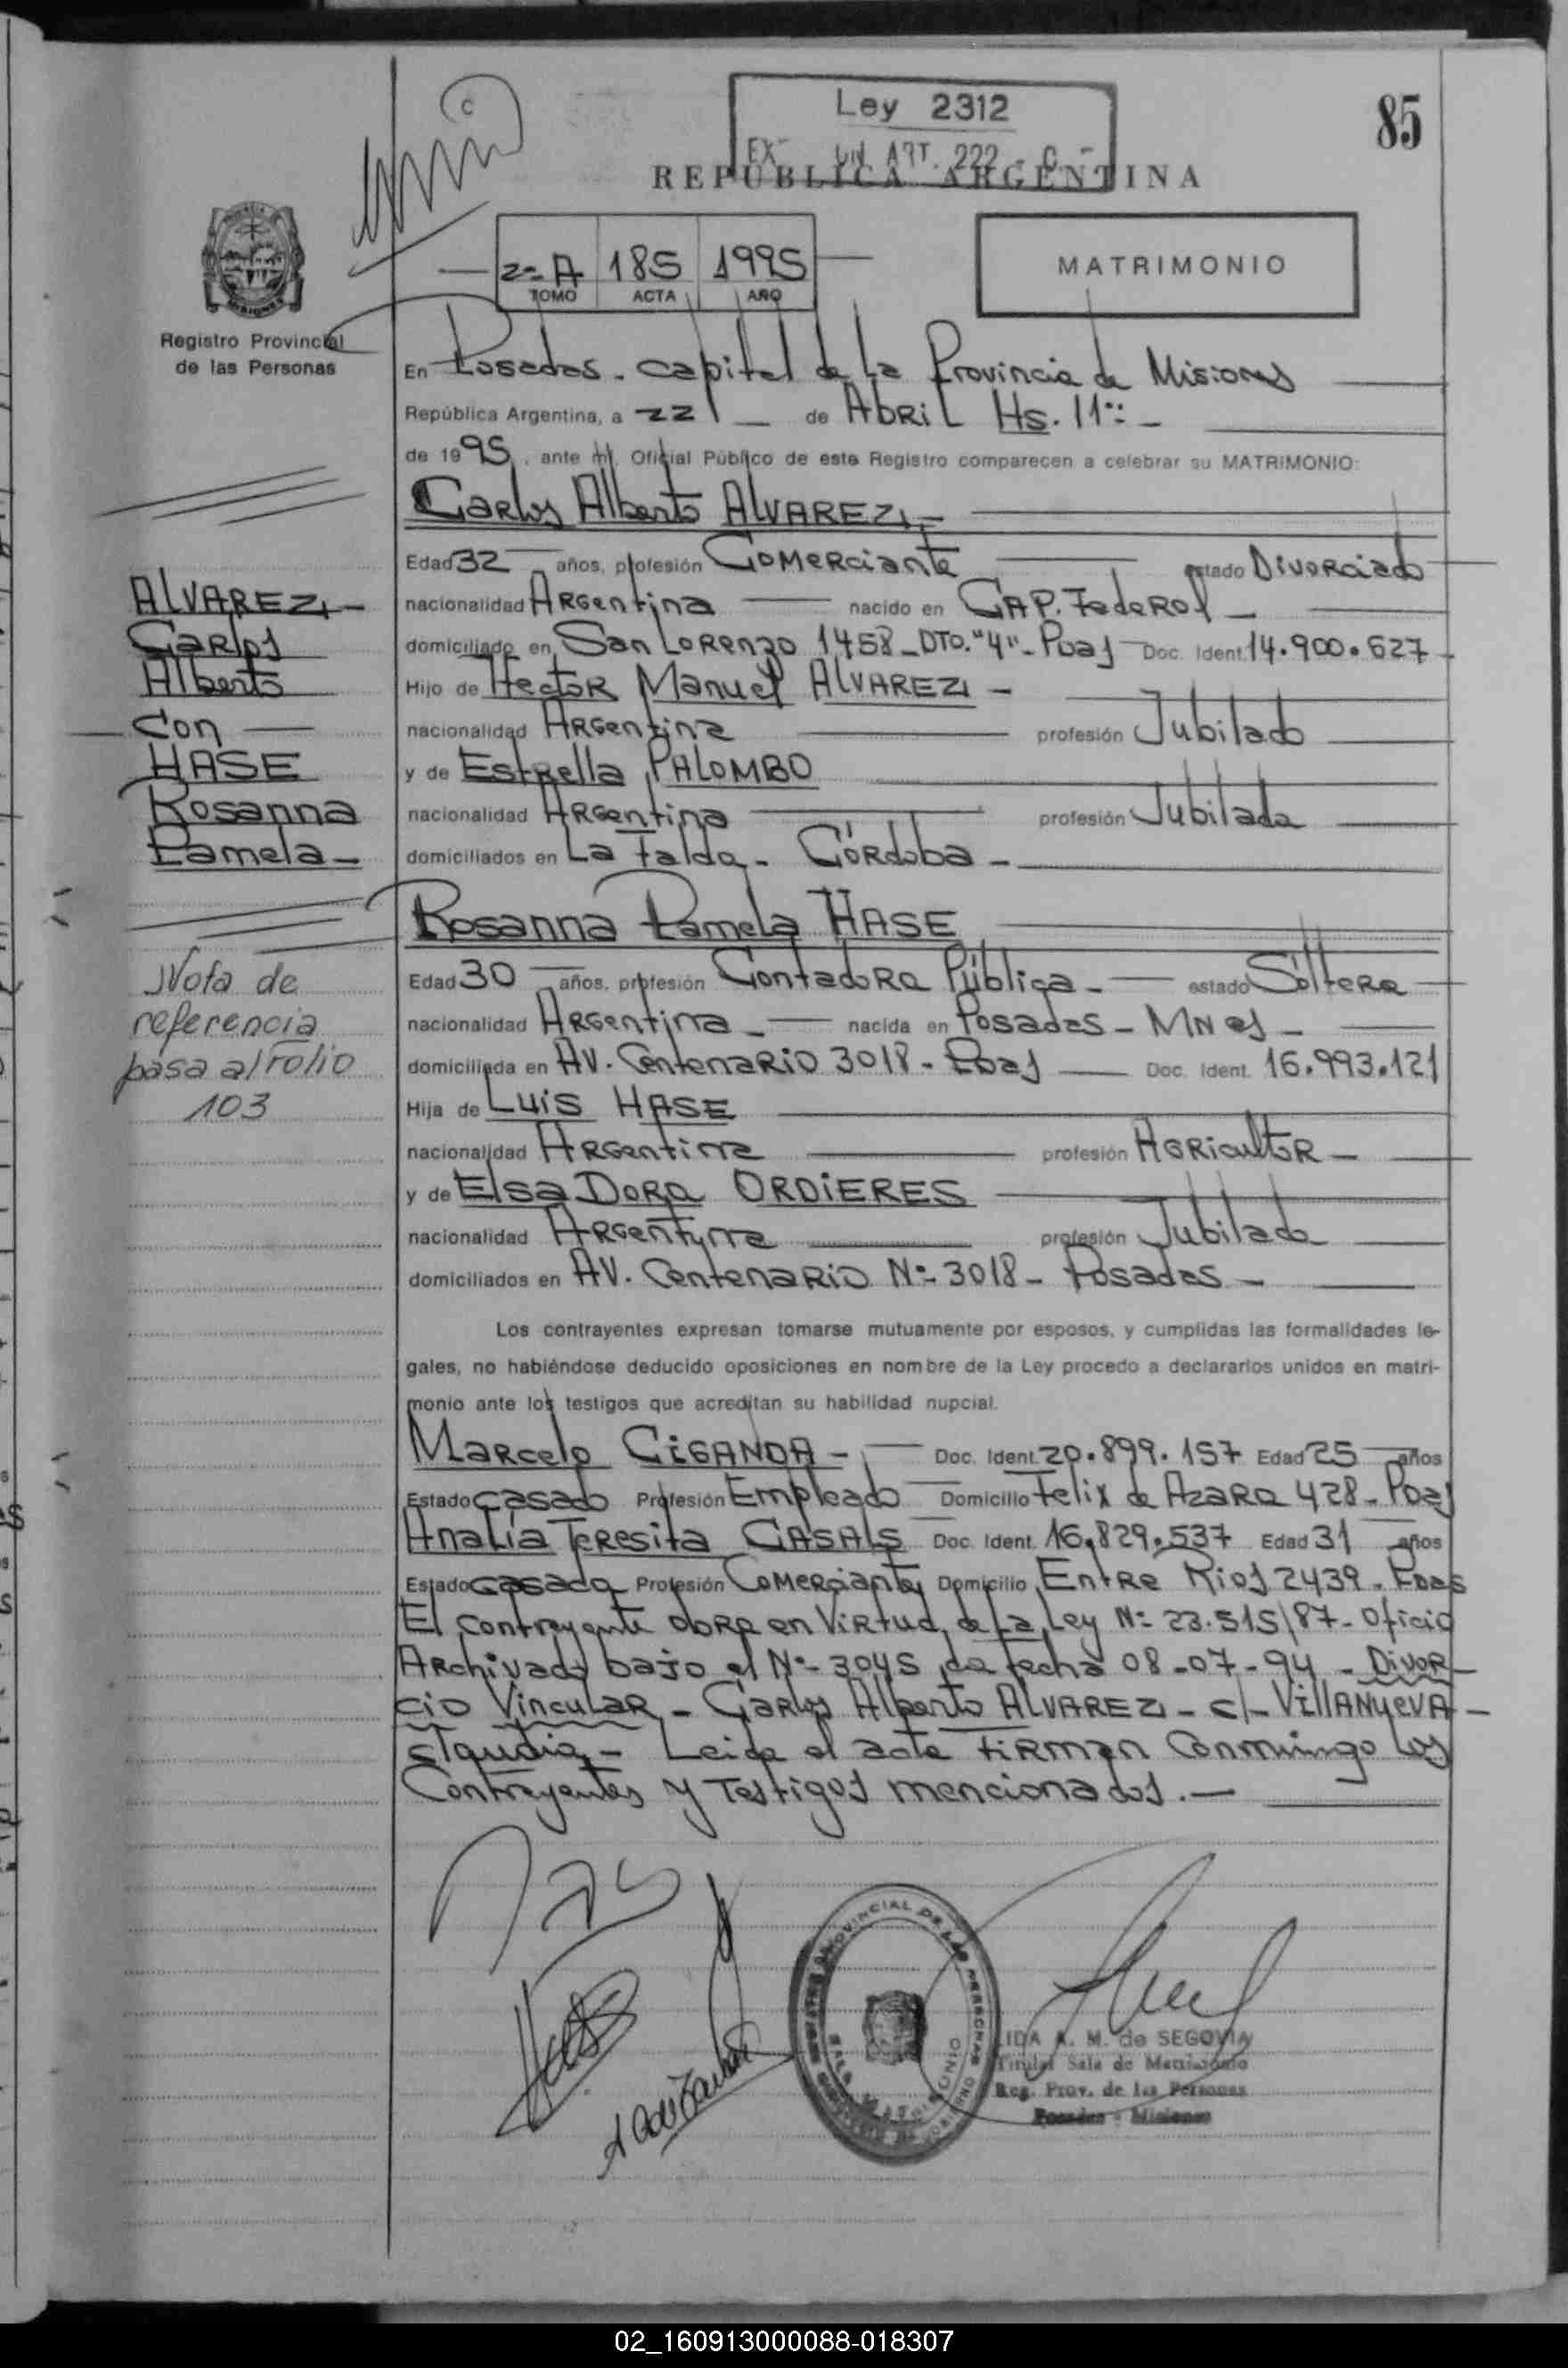 Ley 2312
85
REPUBLICA ARGENTINA
2º A 185 1995
TOMO ACTA AÑO
MATRIMONIO
Registro Provincial
de las Personas
En Posadas - Capital de La Provincia de Misiones
República Argentina, a 22 de Abril Hs. 11:
de 1995, ante mí, Oficial Público de este Registro comparecen a celebrar su MATRIMONIO:
Carlos Alberto ALVAREZ -
Edad 32 años, profesión Comerciante estado Divorciado
nacionalidad Argentina nacido en CAP. Federal -
domiciliado en San Lorenzo 1458 - DTO. "4" - Pdas Doc. Ident. 14.900.627 -
Hijo de Hector Manuel ALVAREZ -
nacionalidad Argentina profesión Jubilado
y de Estrella PALOMBO
nacionalidad Argentina profesión Jubilada
domiciliados en La Falda - Córdoba -
ALVAREZ -
Carlos
Alberto
Con
HASE
Rosanna
Pamela -
Rosanna Pamela HASE
Edad 30 años, profesión Contadora Pública - estado Soltera
nacionalidad Argentina - nacida en Posadas - Mnes -
domiciliada en AV. Centenario 3018 - Pdas Doc. Ident. 16.993.121
Hija de Luis HASE
nacionalidad Argentina profesión Agricultor -
y de Elsa Dora ORDIERES
nacionalidad Argentina profesión Jubilada
domiciliados en AV. Centenario Nº 3018 - Posadas -
Nota de
referencia
pasa al Folio
103
Los contrayentes expresan tomarse mutuamente por esposos, y cumplidas las formalidades le-
gales, no habiéndose deducido oposiciones en nombre de la Ley procedo a declararlos unidos en matri-
monio ante los testigos que acreditan su habilidad nupcial.
Marcelo CIGANDA - Doc. Ident. 20.899.157 Edad 25 años
Estado casado Profesión Empleado Domicilio Felix de Azara 428 - Pdas
Analía Teresita CASALS Doc. Ident. 16.829.537 Edad 31 años
Estado casada Profesión Comerciante Domicilio Entre Rios 2439 - Pdas
El contrayente obra en Virtud de La Ley Nº 23.515/87 - Oficio
Archivado bajo el Nº 3045 de fecha 08-07-94 - Divor-
cio Vincular - Carlos Alberto ALVAREZ - c/ - VILLANUEVA -
Claudia - Leida el acta Firman Conmigo Los
Contrayentes y Testigos mencionados. -
LIDA A. M. de SEGOVIA
Titular Sala de Matrimonio
Reg. Prov. de las Personas
Posadas - Misiones
02_160913000088-018307